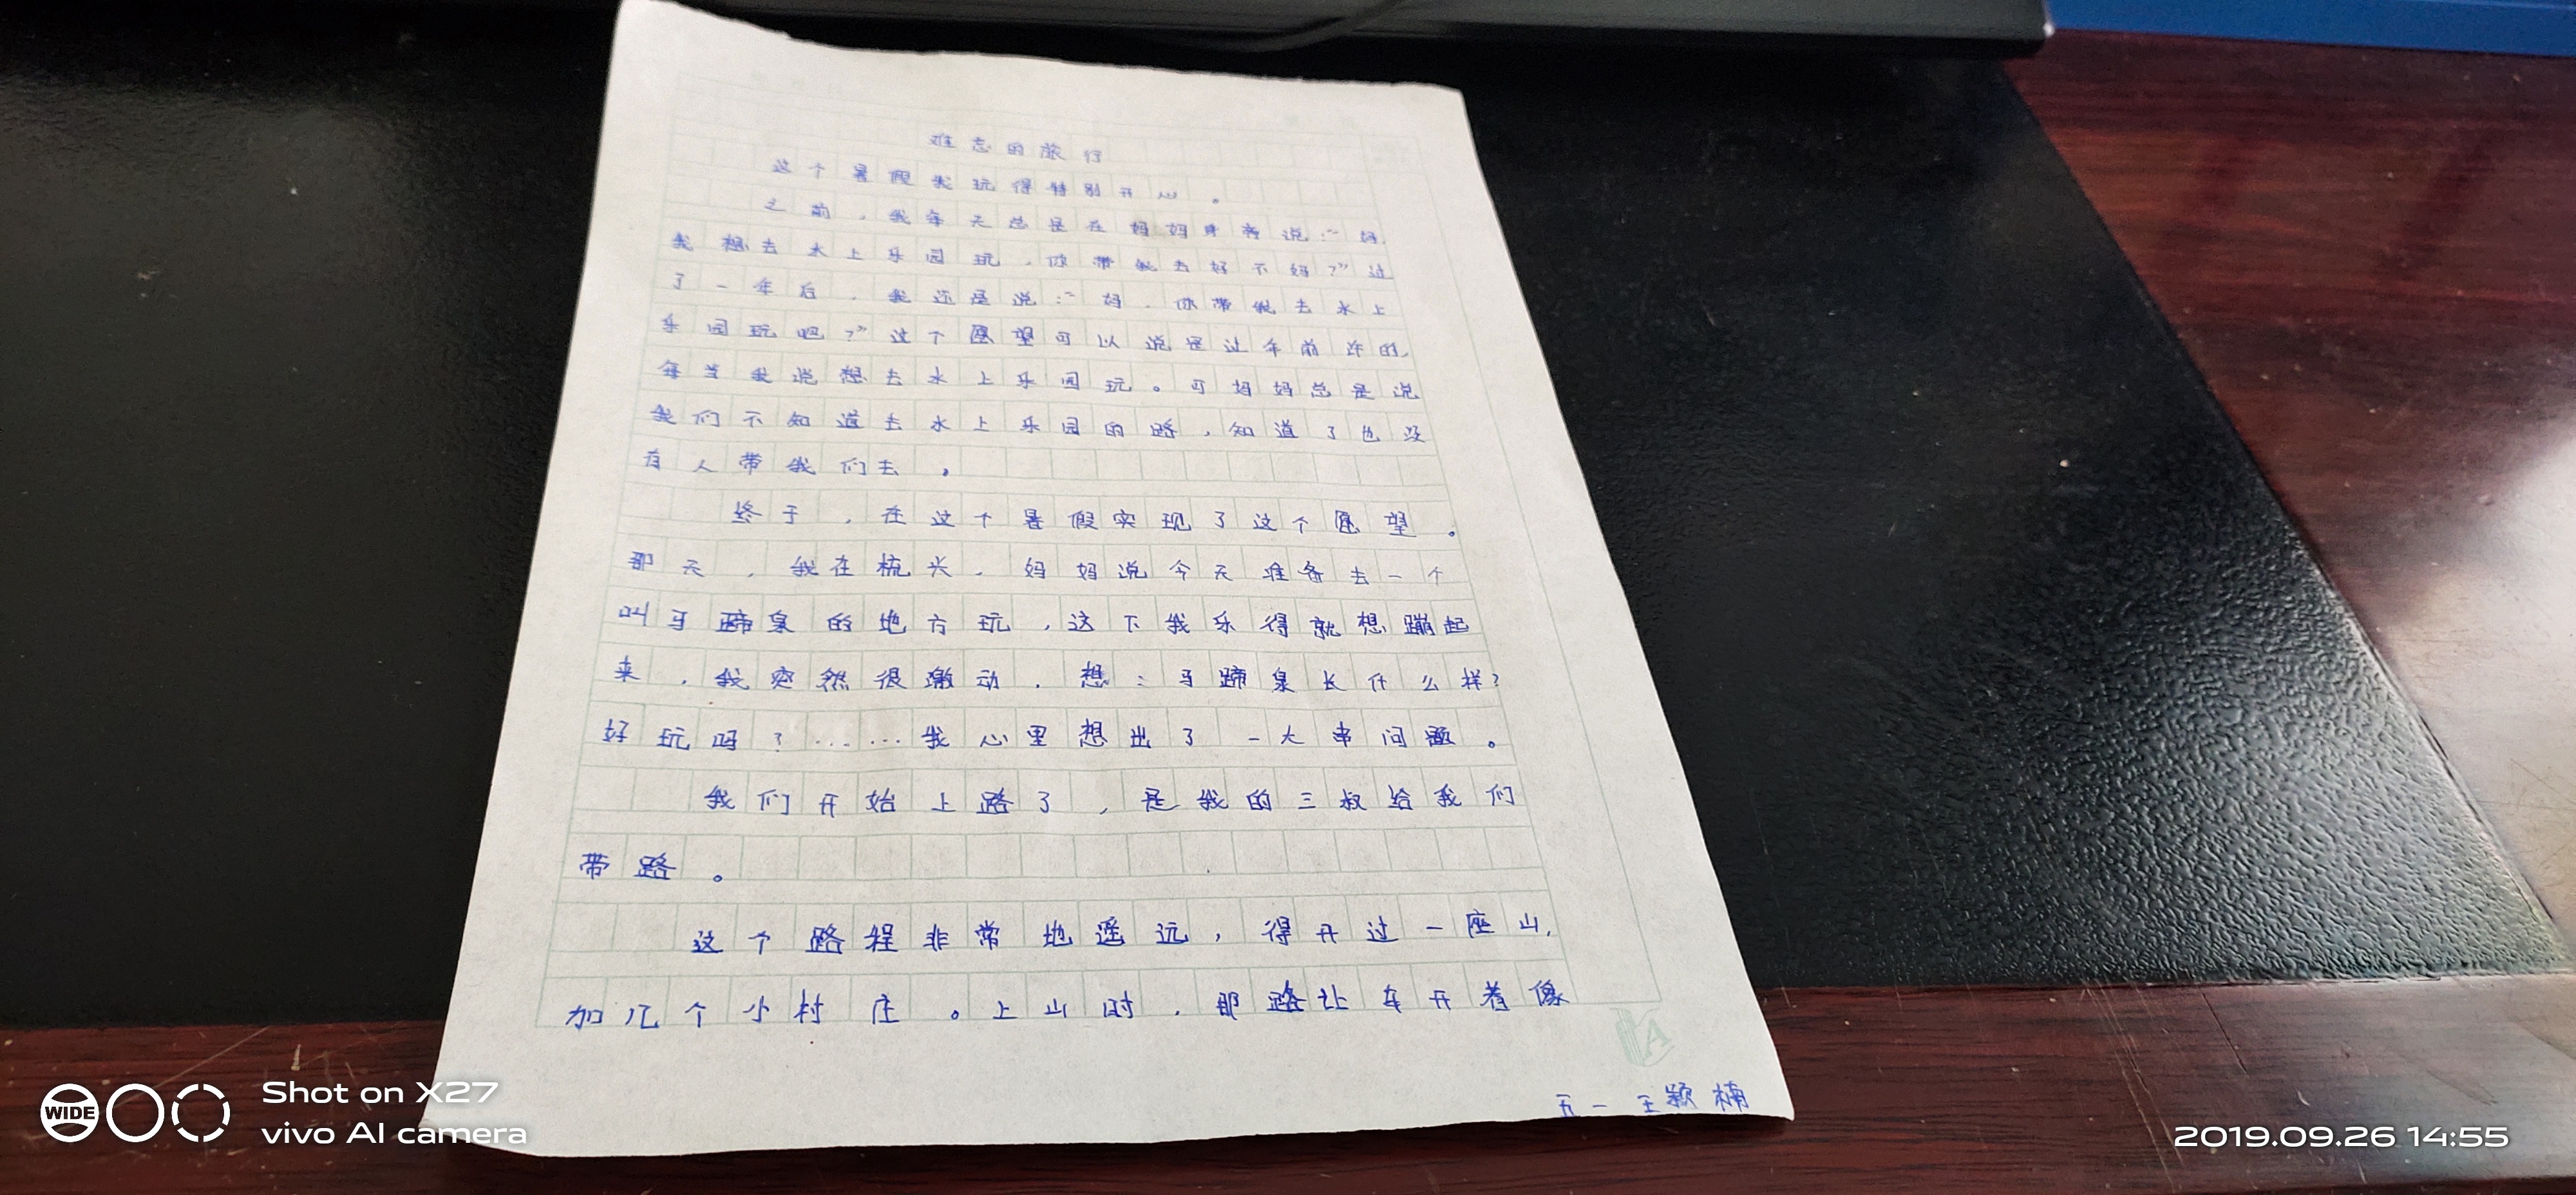 难忘的旅行
这个暑假我玩得特别开心。
之前，我每天总是在妈妈身旁说：“妈，
我想去水上乐园玩，你带我去好不妈？”过
了一年后，我还是说：“妈，你带我去水上
乐园玩吧？”这个愿望可以说是让年前许的，
每当我说想去水上乐园玩。可妈妈总是说
我们不知道去水上乐园的路，知道了也没
有人带我们去。
终于，在这个暑假实现了这个愿望。
那天，我在梳头，妈妈说今天准备去一个
叫马蹄泉的地方玩，这下我乐得就想蹦起
来，我突然很激动，想：马蹄泉长什么样？
好玩吗？……我心里想出了一大串问题。
我们开始上路了，是我的三叔给我们
带路。
这个路程非常地遥远，得开过一座山，
加几个小村庄。上山时，那路让车开着像
五一 王颖楠
WIDE
Shot on X27
vivo AI camera
2019.09.26 14:55